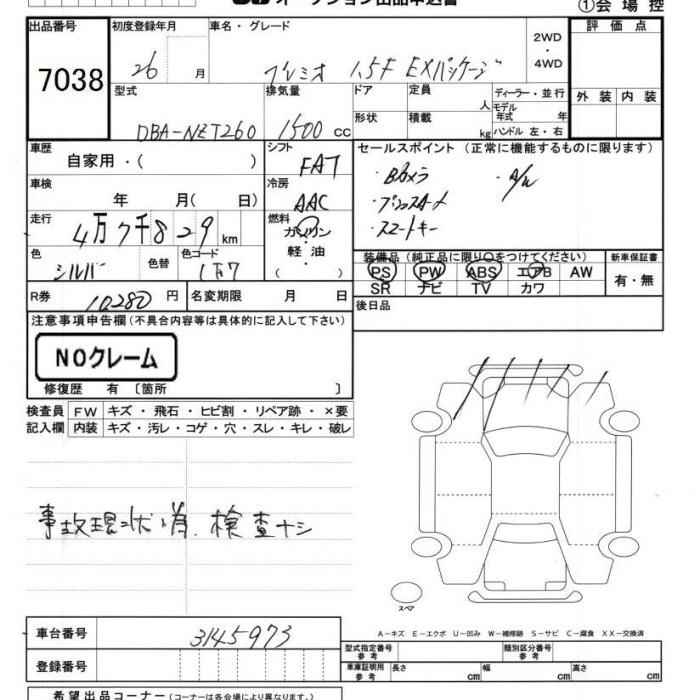 オークション出品申込書
①会場控
出品番号
7038
初度登録年月
26 月
車名・グレード
プレミオ 1.5F EXパッケージ
2WD
・
4WD
評価点
外装 内装
型式
DBA-NZT260
排気量
1500 cc
ドア
形状
定員
人
積載
kg
ディーラー・並行
モデル年式 年
ハンドル 左・右
車歴
自家用・( )
シフト
FAT
セールスポイント (正常に機能するものに限ります)
・Bカメラ ・A/W
・プッシュスタート
・スマートキー
車検
年 月( 日)
冷房
AAC
走行
4万7千829 km
燃料
ガソリン
・
軽油
( )
色
シルバー
色替
色コード
1F7
装備品 (純正品に限り○をつけてください)
PS PW ABS エアB AW
SR ナビ TV カワ
新車保証書
有・無
R券
10280 円
名変期限 月 日
後日品
注意事項申告欄(不具合内容等は具体的に記入して下さい)
NOクレーム
修復歴 有 〔箇所 〕
検査員 FW キズ・飛石・ヒビ割・リペア跡・×要
記入欄 内装 キズ・汚レ・コゲ・穴・スレ・キレ・破レ
事故現状・為、検査ナシ
スペア
A-キズ E-エクボ U-凹み W-補修跡 S-サビ C-腐食 XX-交換済
車台番号
3145973
登録番号
型式指定番号 参考
類別区分番号 参考
車庫証明用 参考
長さ cm
幅 cm
高さ cm
希望出品コーナー(コーナーは各会場により異なります。)